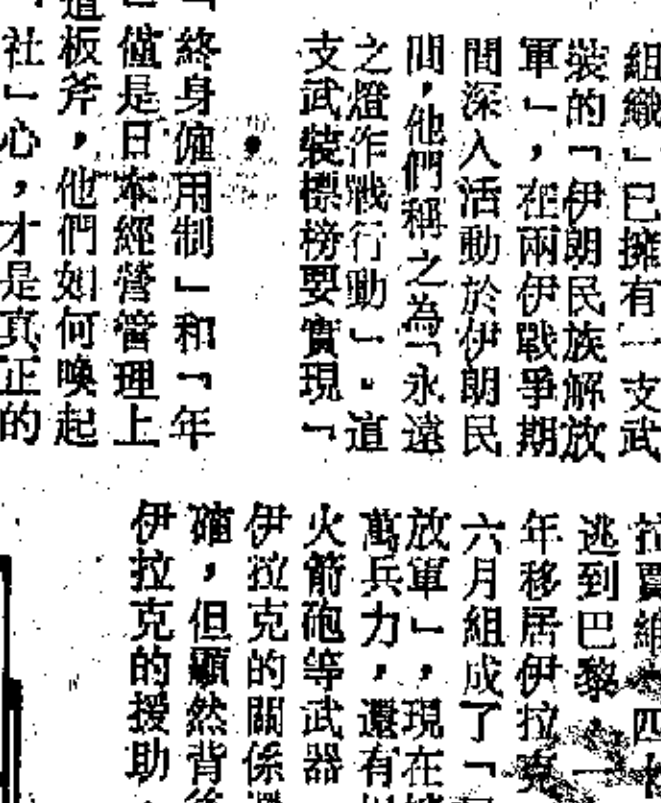 組織」已擁有一支武
裝的「伊朗民族解放
軍」，在兩伊戰爭期
間深入活動於伊朗民
間，他們稱之為「永遠
之燈作戰行動」。這
支武裝標榜要實現「
「終身僱用制」和「年
」僅是日本經營管理上
道板斧，他們如何喚起
「社」心，才是真正的
拉賈維
四
逃到巴黎，一
年移居伊拉克
六月組成了「
放軍」，現在擁
萬兵力，還有
火箭砲等武器
伊拉克的關係還
確，但顯然背後
伊拉克的援助，